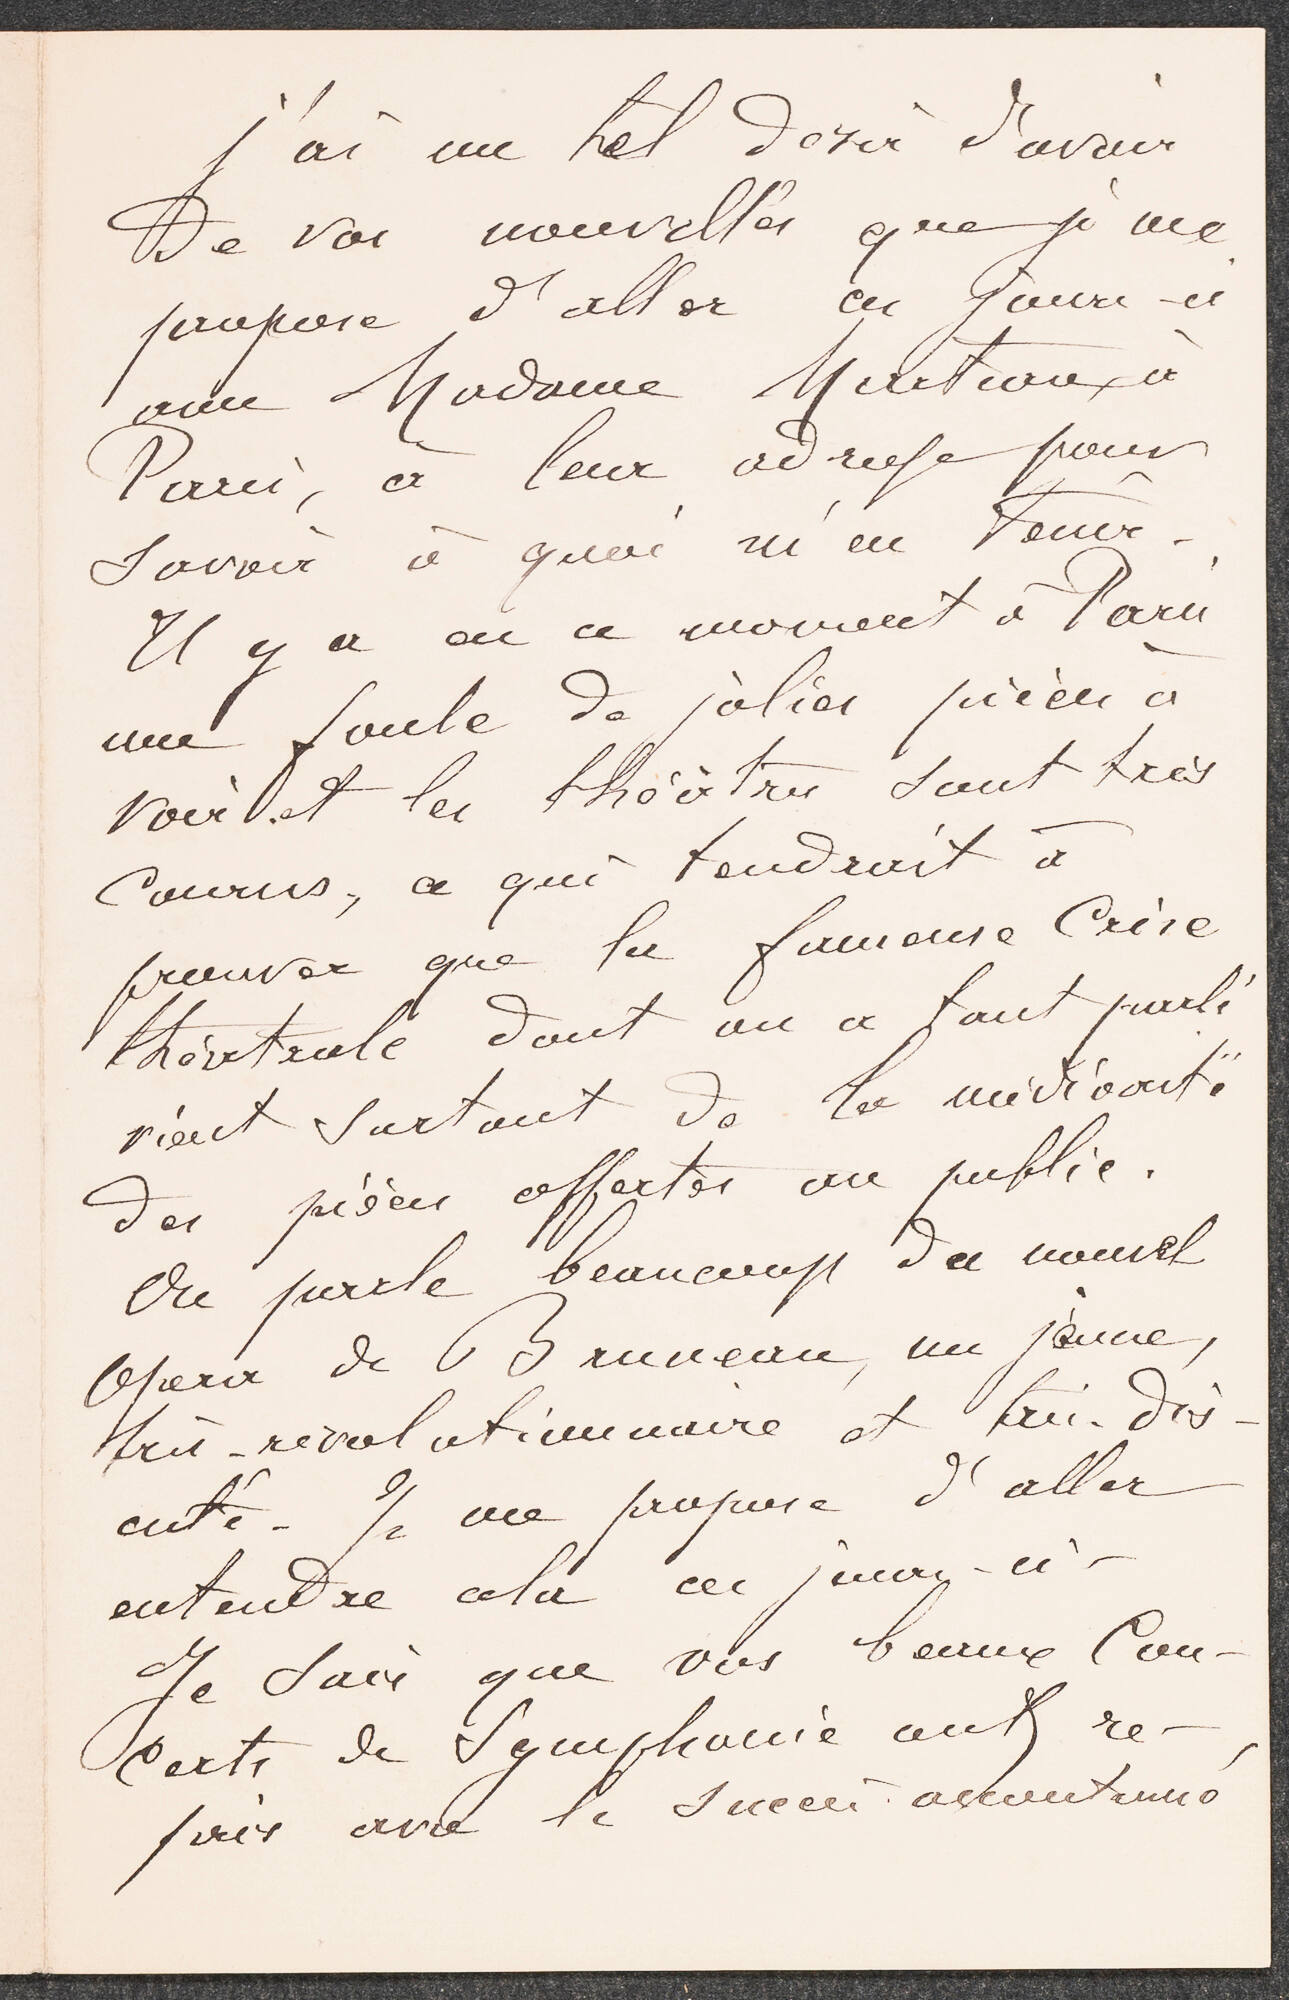 j'ai un tel désir d'avoir
De vos nouvelles que je me
propose d'aller ces jours-ci
avec Madame à
Paris, à leur adresse pour
Savoir à quoi m'en tenir -
Il y a en ce moment à Paris
une foule de jolies pièces à
voir et les théâtres sont très
Courus, ce qui tendrait à
prouver que la fameuse Crise
théâtrale dont on a tant parlé
vient surtout de la médiocrité
des pièces offertes au public.
On parle beaucoup du nouvel
Opéra de Bruneau, un jeune,
très-révolutionnaire et très-dis-
cuté - Je me propose d'aller
entendre cela ces jours-ci -
Je Sais que vos beaux Con-
certs de Symphonie ont re-
pris avec le succès accoutumé,